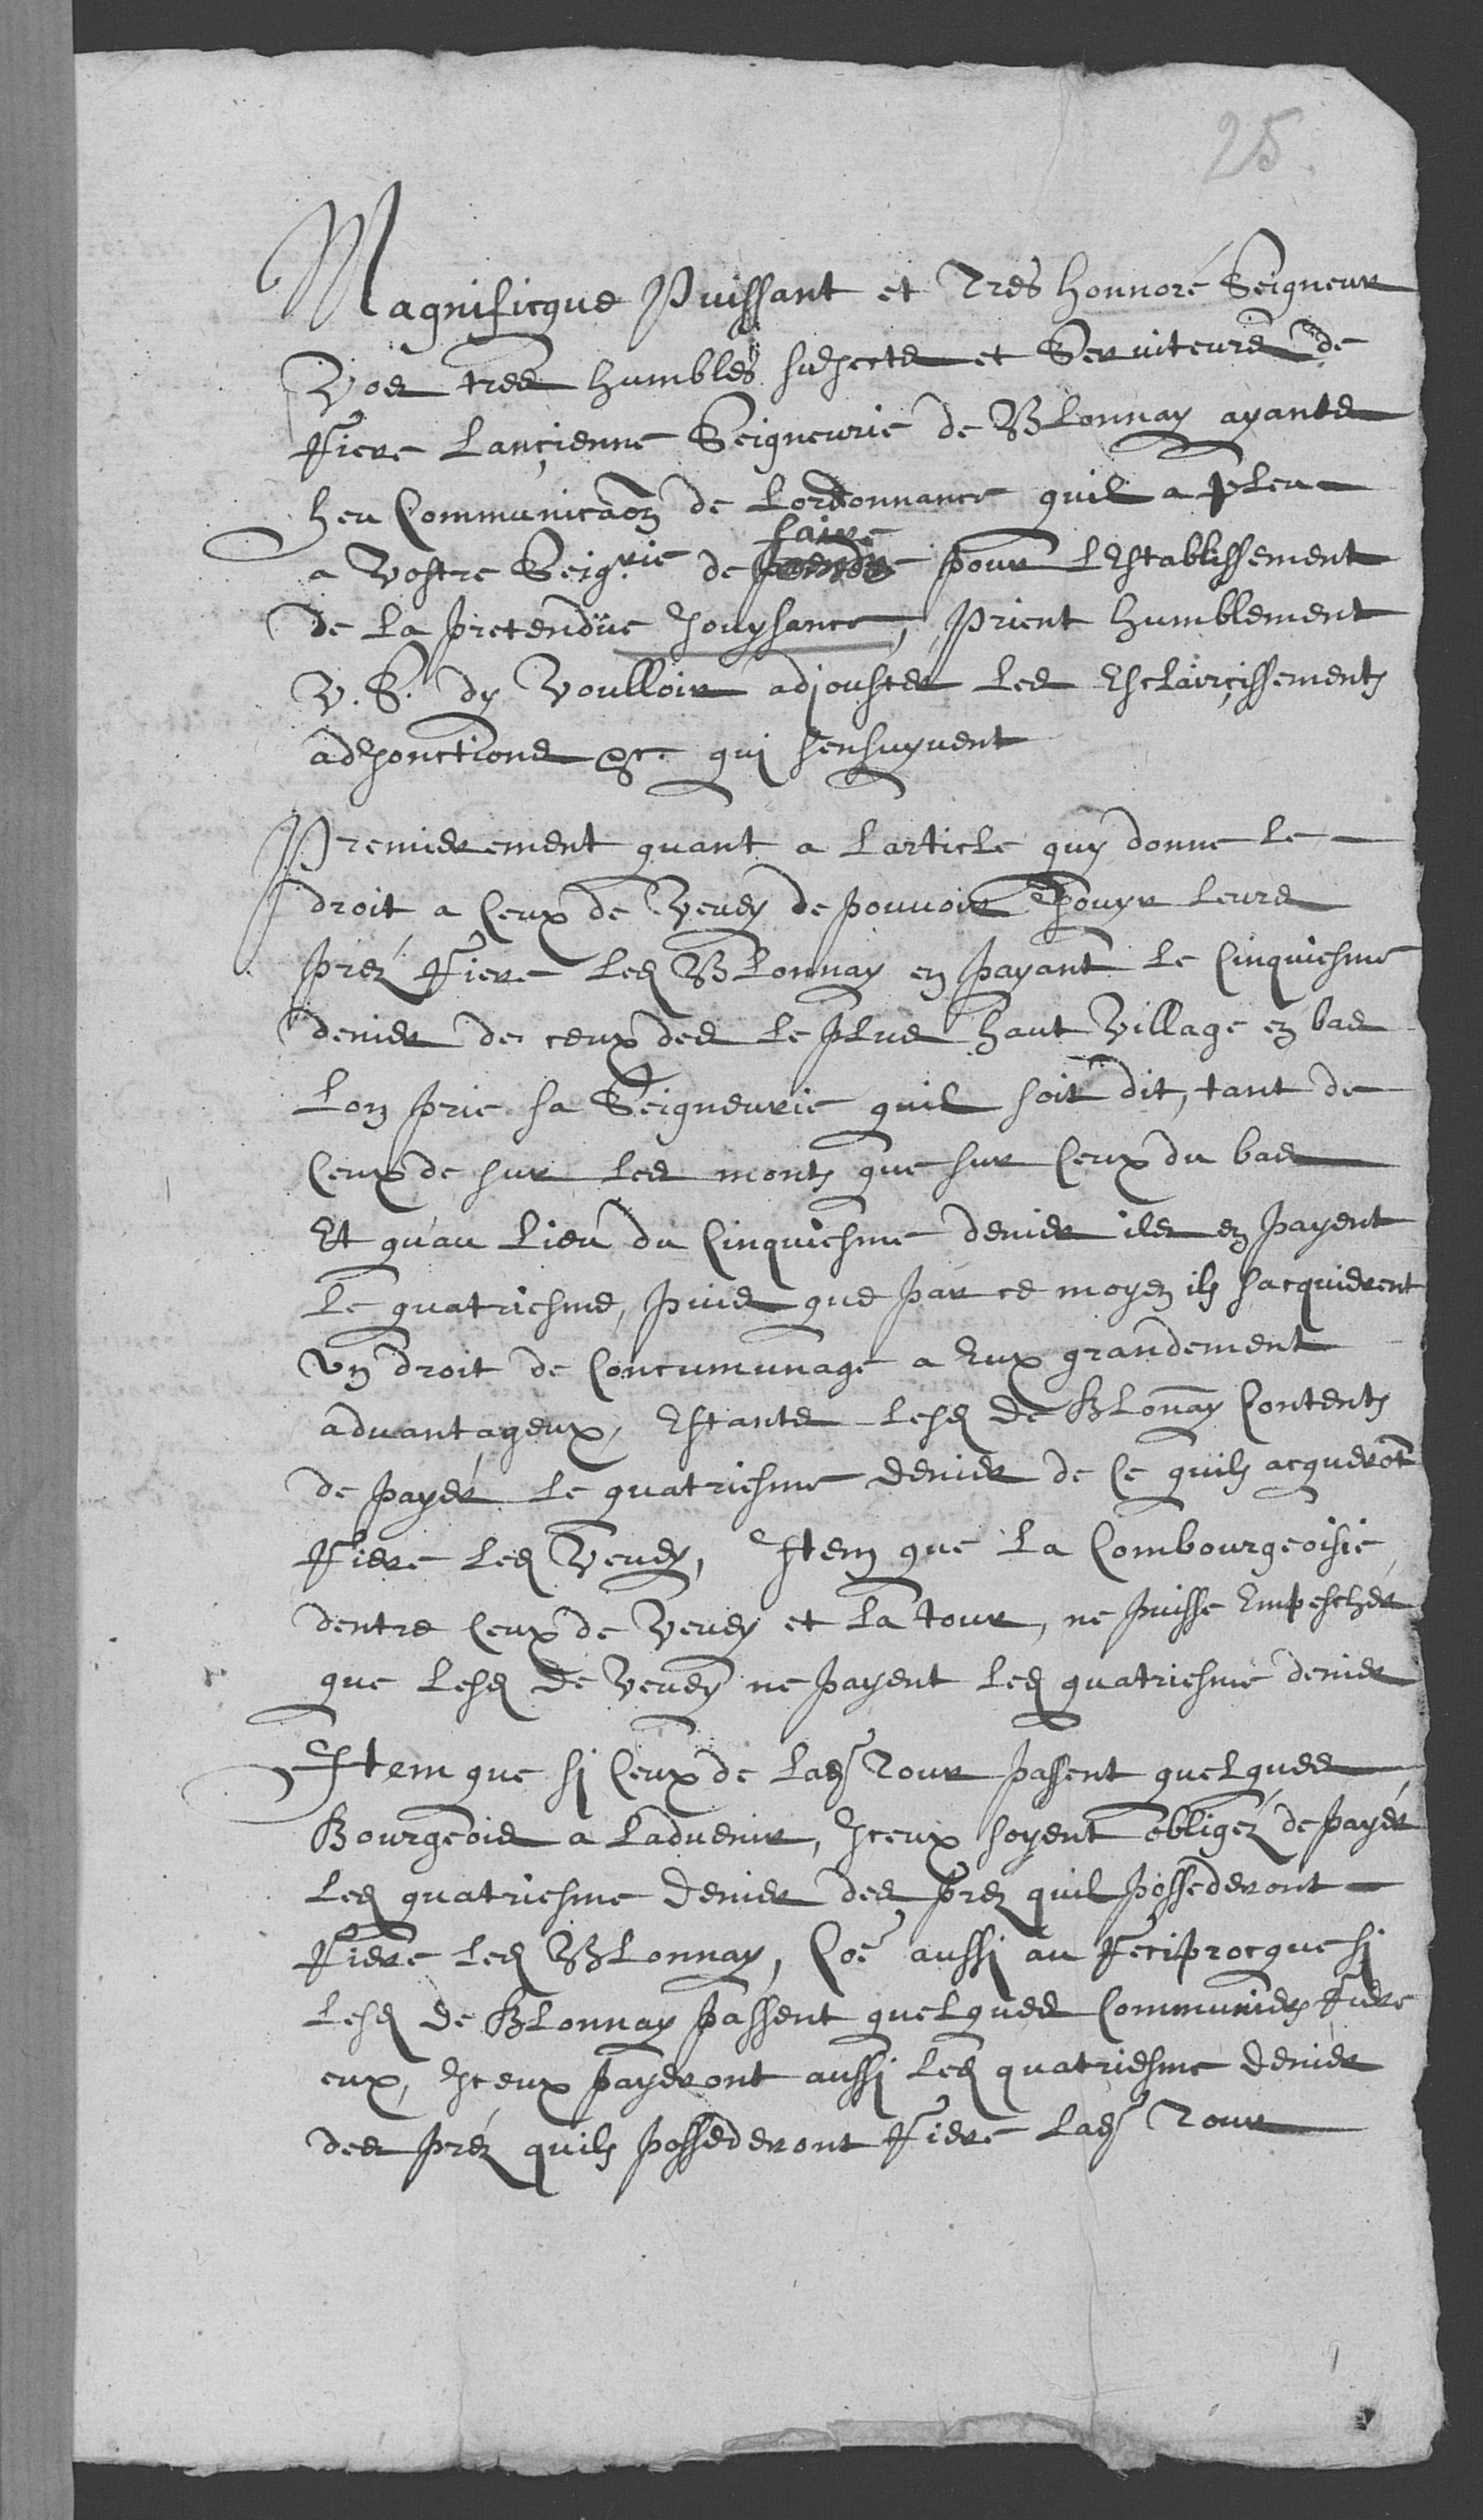 25
Magnificque Puissant et Tres honnoré Seigneur
Vos tres humbles subjects et Serviteurs de
riere Lançienne Seigneurie de Blonnay ayants
heu Communicaon de Lordonnance quil a pleu
a Vostre Seig.rie de faire pour LEstablissement
de La pretendüe Jouysance, Prient humblement
V. S. dy Voulloir adjouster les Esclairçissements
adjonctions &c. qui sensuyvent
Premierement quant a Larticle quy donne le
droit a Ceux de Vevey de pouvoir Jouyr leurs
prez riere Led Blonnay en payant le Cinquiesme
denier de ceux des le plus haut Village en bas
Lon prie sa Seigneurie quil soit dit, tant de
Ceux de sur les monts que sur Ceux du bas
Et qu'au Lieu du Cinquiesme denier ils en payent
Le quatriesme, puis que par ce moyen ils sacquierent
un droit de Concumunage a Eux grandement
advantageux, Estants lesd de Blonay Contents
de payer le quatriesme denier de Ce quils acqueront
riere Led Vevey, Item que La Combourgeoisie
dentre Ceux de Vevey et La tour, ne puisse Empescher
que Lesd de Vevey ne payent Led quatriesme denier
Item que si Ceux de Lad Tour passent quelques
Bourgeois a Ladvenir, Iceux soyent obligéz de payér
Led quatriesme denier des prez quil possederont
riere Led Blonnay, Coe aussi au reciprocque si
Lesd de Blonnay passent quelques Communiers riere
eux, Iceux payeront aussi Led quatriesme denier
des préz quils possederont riere Lad Tour